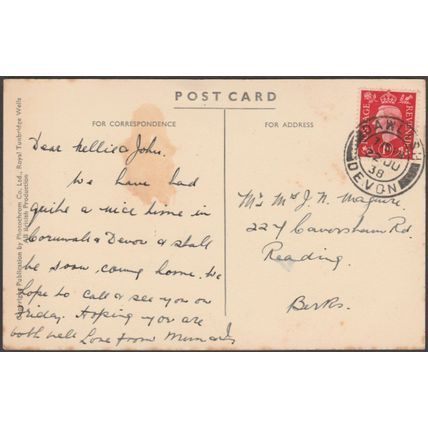 POST CARD
FOR CORRESPONDENCE
FOR ADDRESS
Dear Nellie & John.
We have had
quite a nice time in
Cornwall & Devon & shall
be soon coming home. We
hope to call & see you on
Friday. Hoping you are
both well Love from Mum
Mr & Mrs J. N. Maguire
224 Caversham Rd.
Reading.
Berks.
POSTAGE REVENUE
DAWLISH
38
DEVON
Publication by Photochrom Co., Ltd., Royal Tunbridge Wells
All British Production